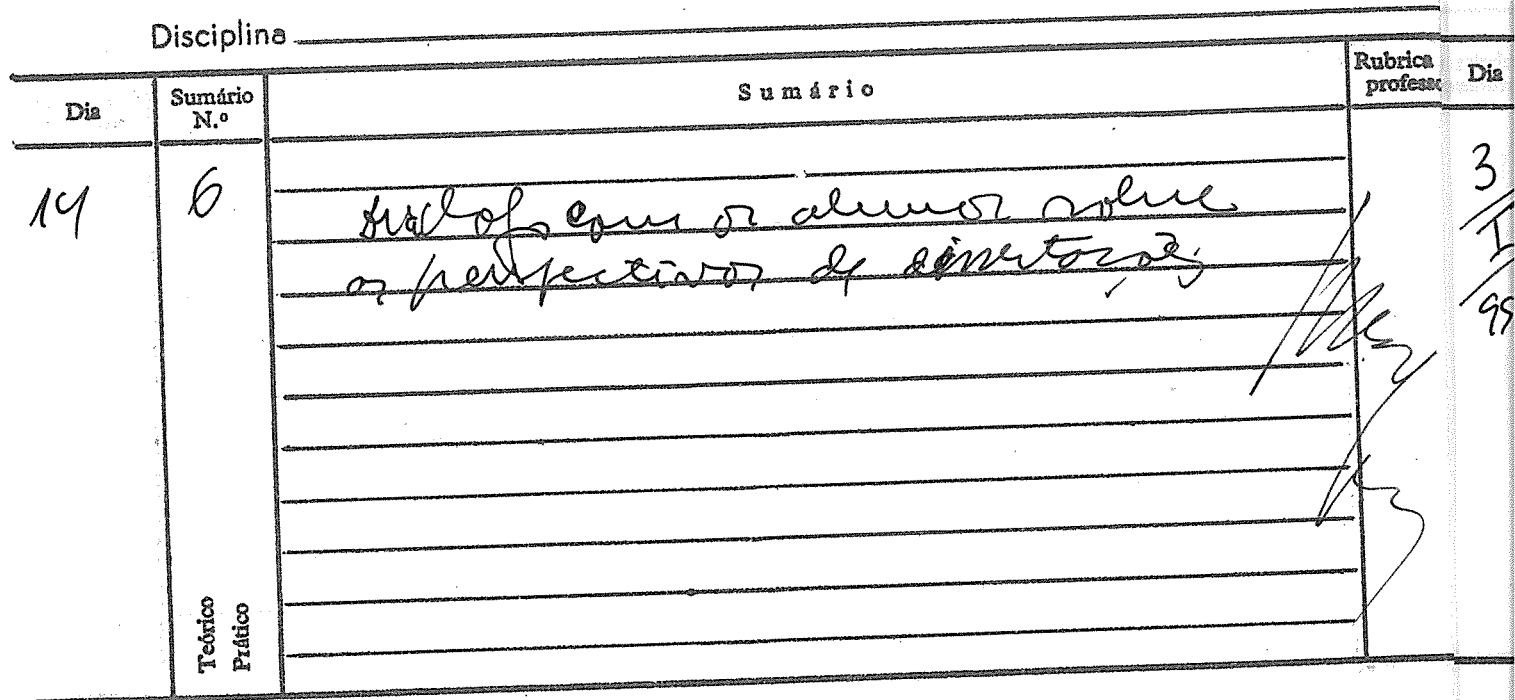 Disciplina
Dia Sumário N.º Sumário Rubrica professo Dia
14 6 Diálogo com os alunos sobre
as perspectivas de dissertações
3
/I
/95
Teórico
Prático